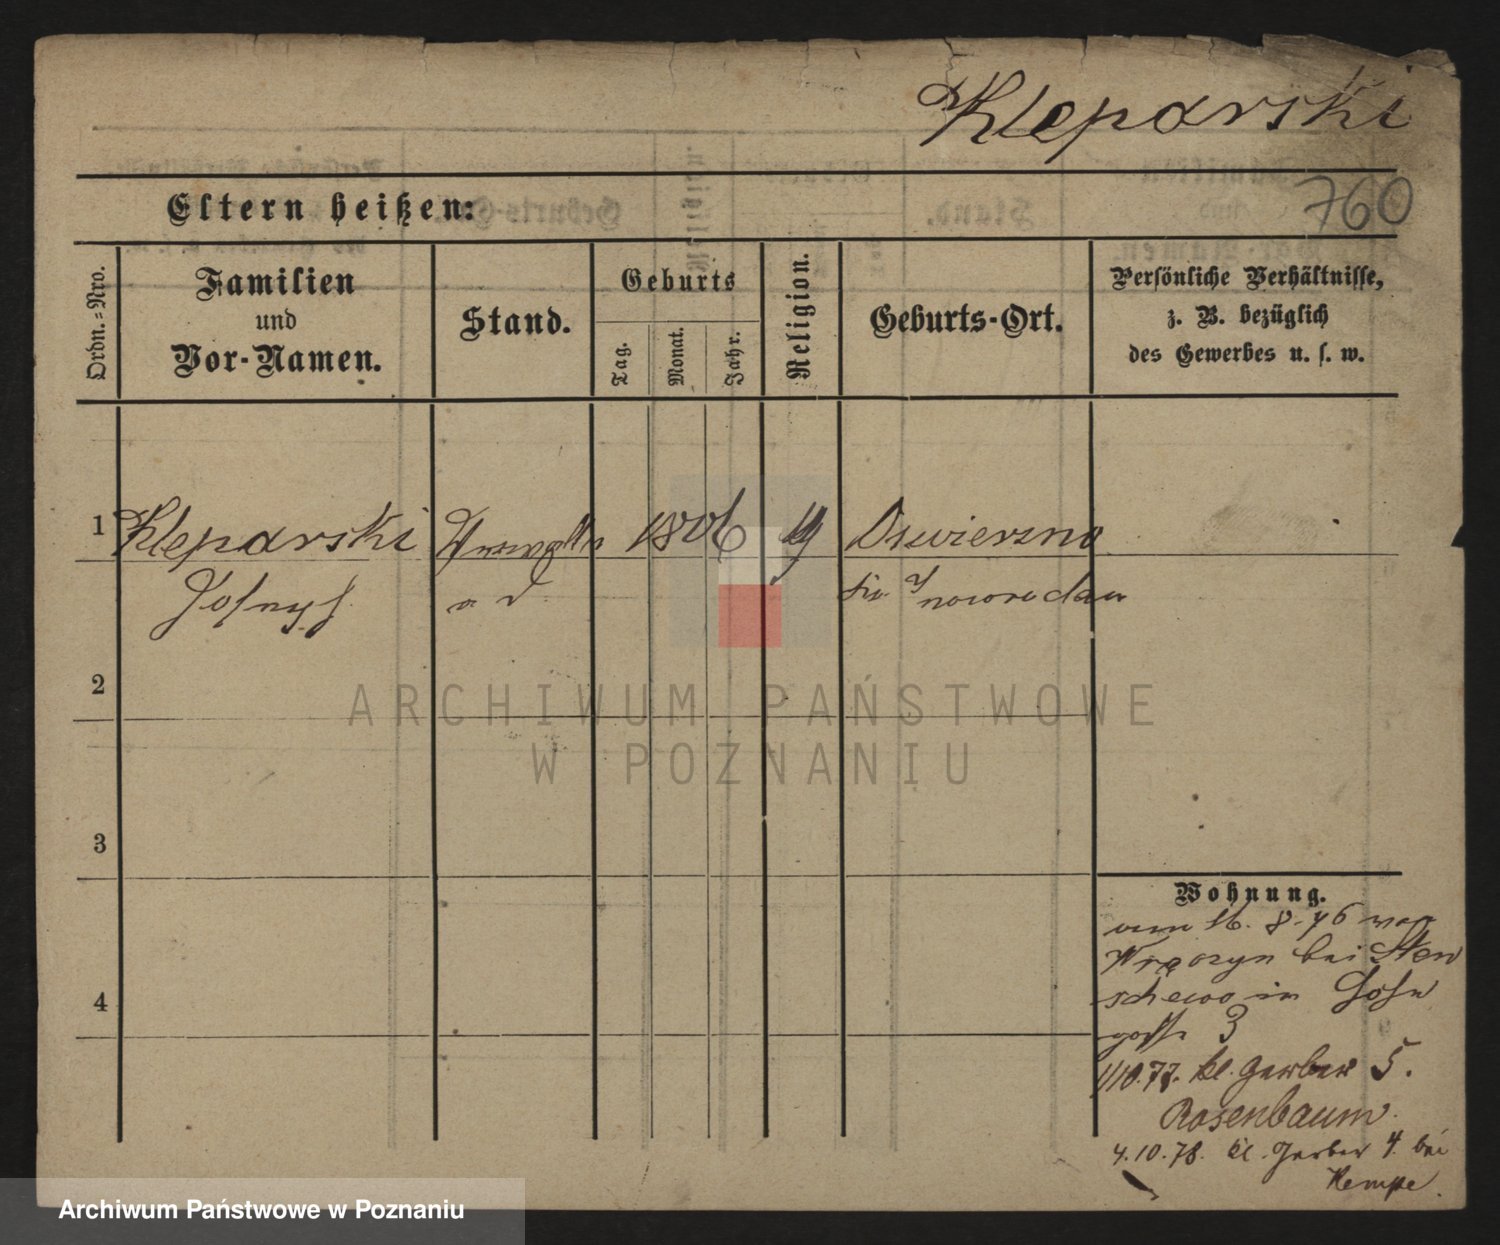 Kleparski
760
Eltern heißen:
Ordn.-Nro.
Familien
und
Vor-Namen.
Stand.
Geburts
Tag.
Monat.
Jahr.
Religion.
Geburts-Ort.
Persönliche Verhältnisse,
z. B. bezüglich
des Gewerbes u. s. w.
1
Kleparski
1806
2
3
4
Wohnung.
16. 8. 76 von
bei Sten
schewo in
gasse 3
1/10.77. kl. Gerber 5.
Rosenbaum.
4.10.78. kl. Gerber 4. bei
Kempe.
ARCHIWUM PAŃSTWOWE
W POZNANIU
Archiwum Państwowe w Poznaniu